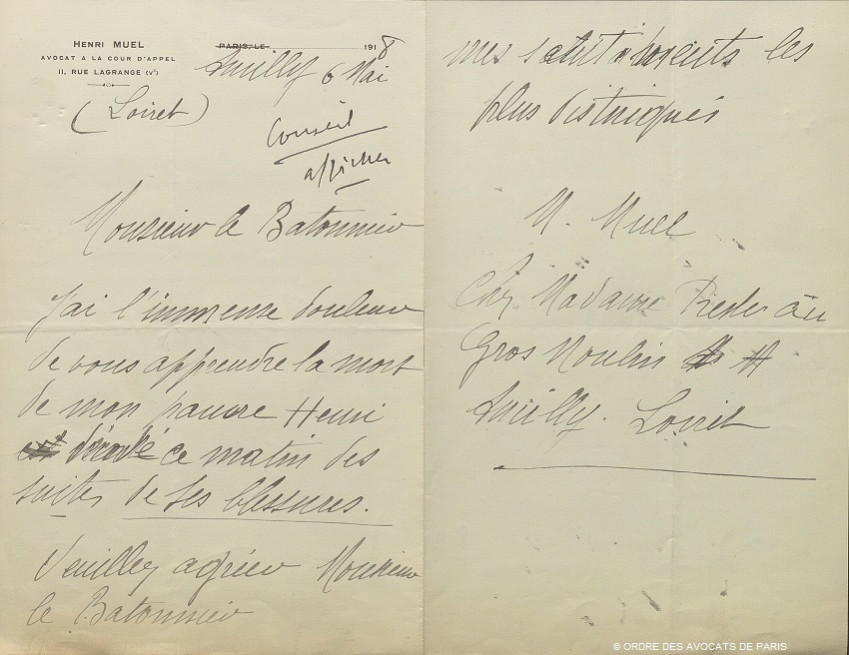 HENRI MUEL
AVOCAT A LA COUR D'APPEL
11, RUE LAGRANGE (Vᵉ)
PARIS, LE 1918
6 Mai
(Loiret)
Conseil
afficher
Monsieur le Batonnier
J'ai l'immense douleur
de vous apprendre la mort
de mon pauvre Henri
décédé ce matin des
suites de ses blessures.
Veuillez agréer Monsieur
le Batonnier
mes les
plus distingués
M. Muel
Chez Madame au
Gros Moulin
Loiret
© ORDRE DES AVOCATS DE PARIS